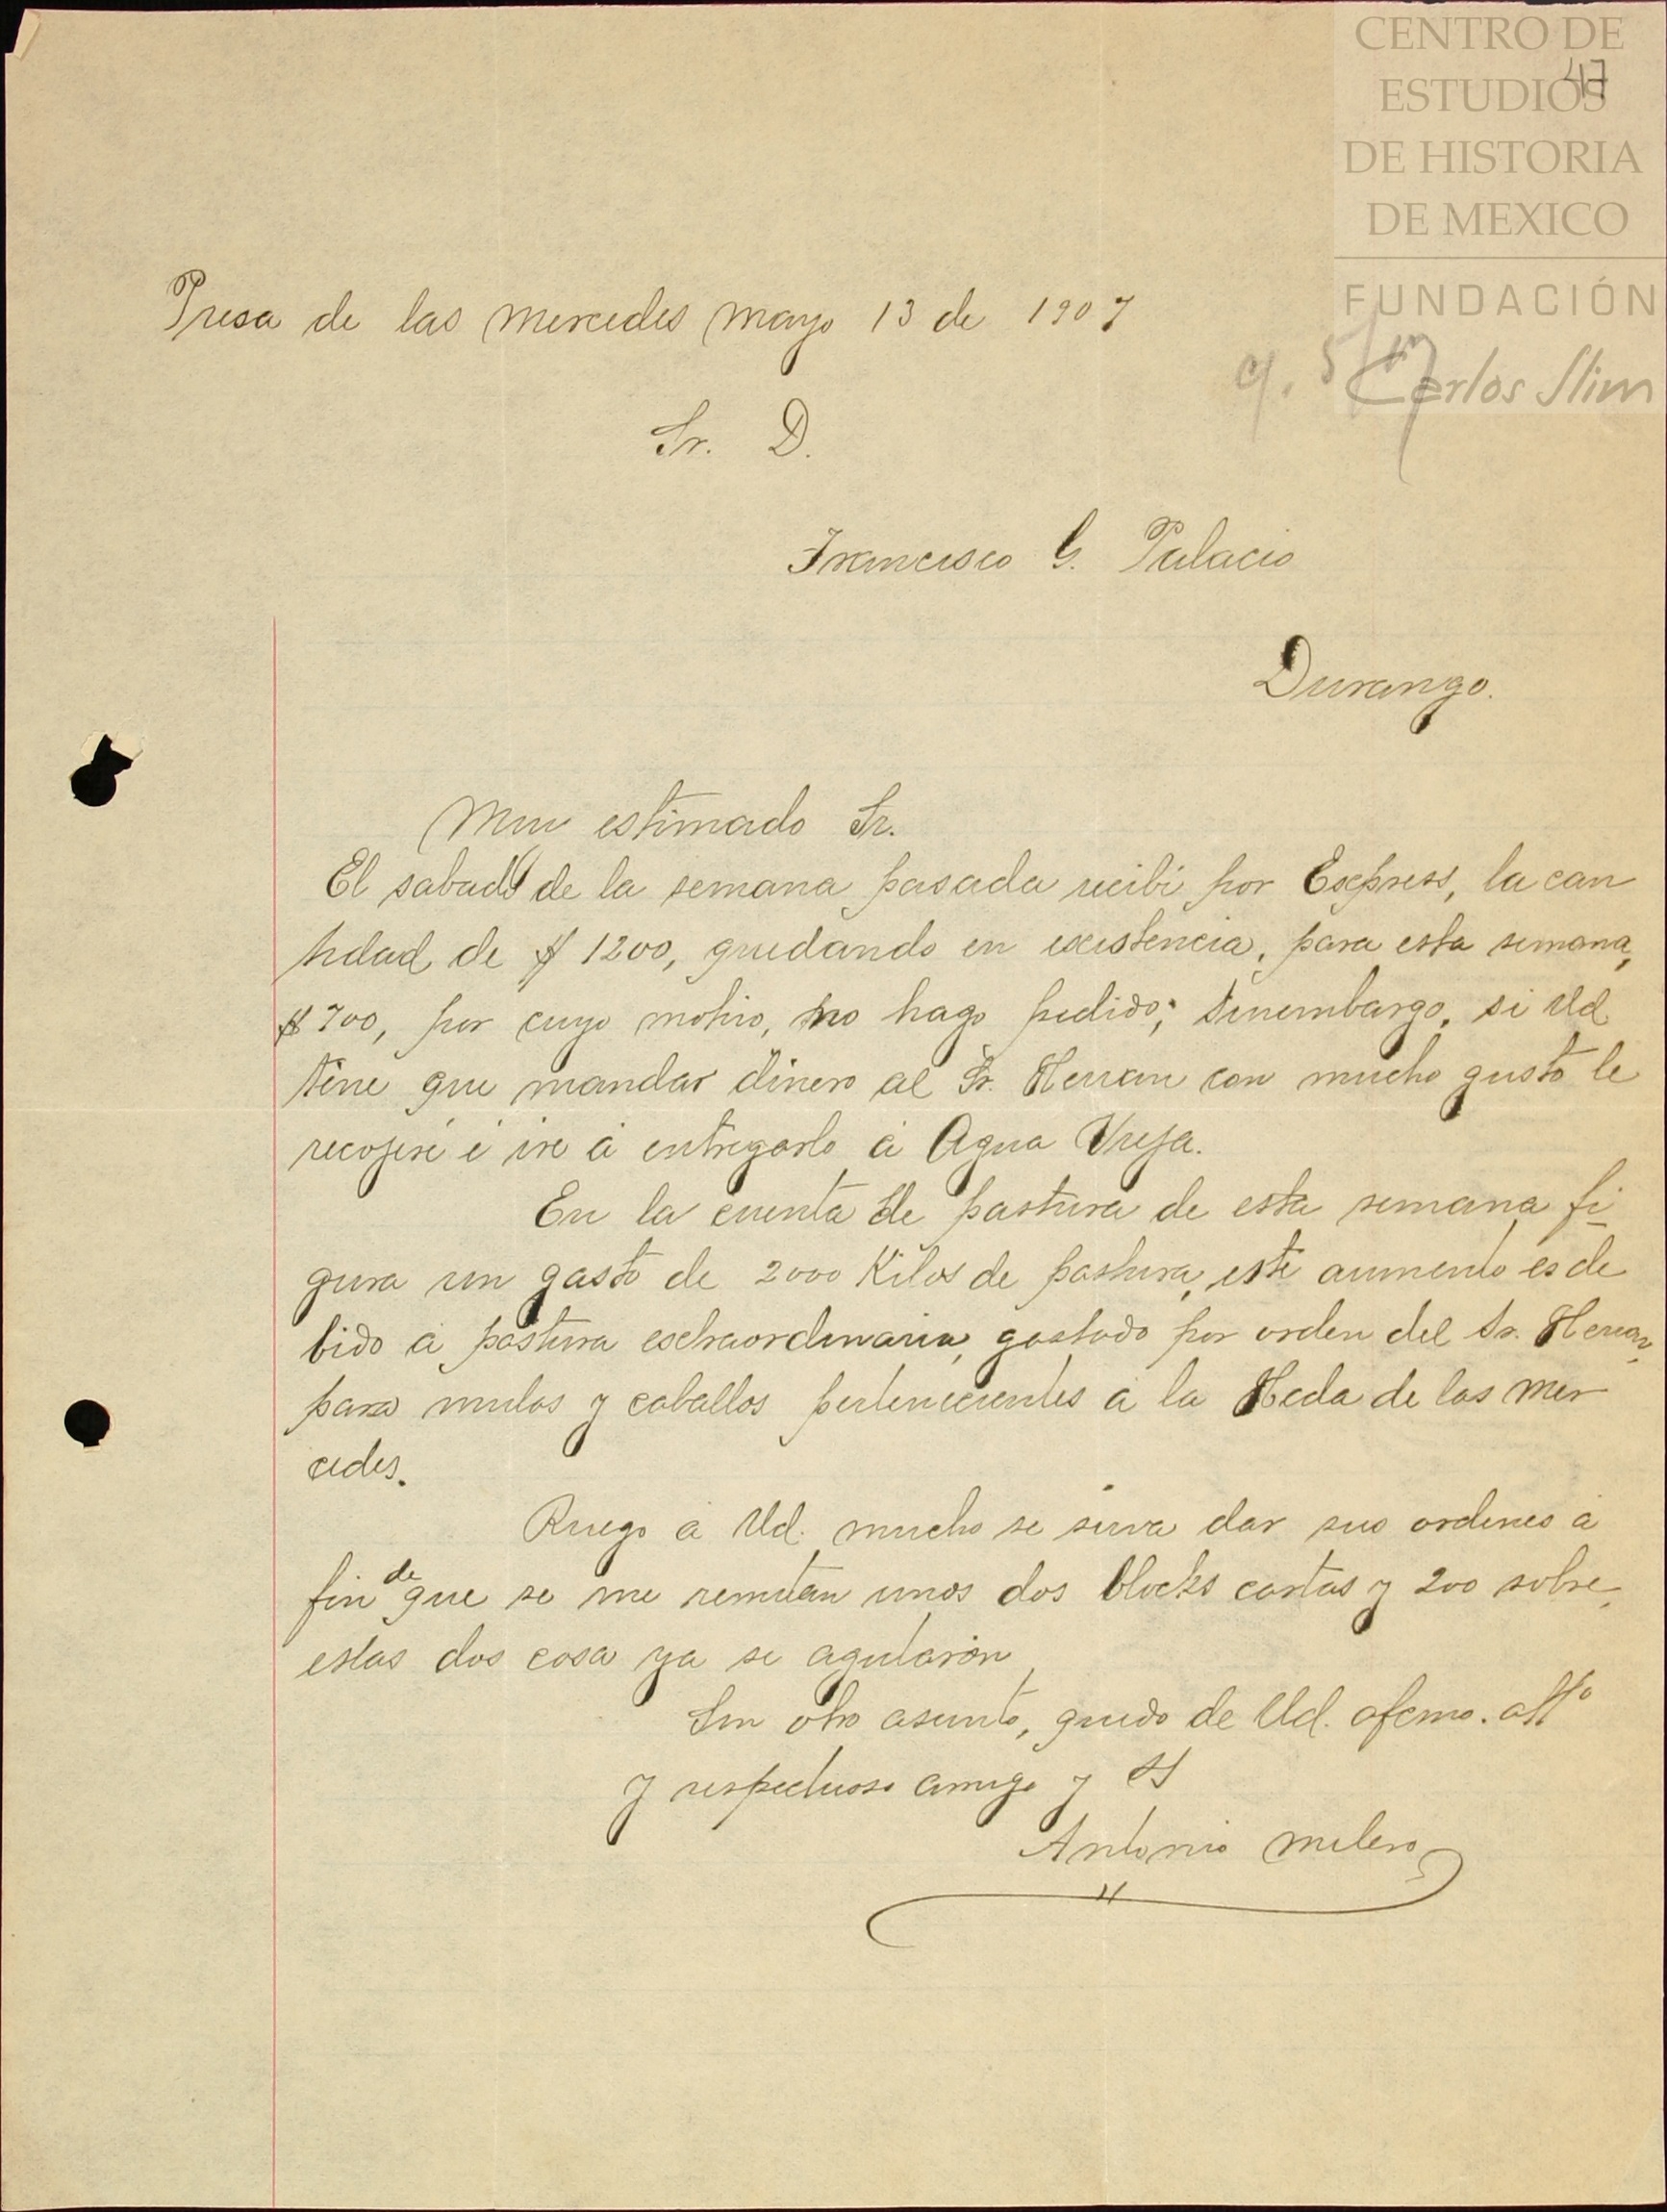 CENTRO DE
ESTUDIOS
DE HISTORIA
DE MEXICO
47
FUNDACIÓN
Carlos Slim
Presa de las Mercedes Mayo 13 de 1907
Sr. D.
Francisco G. Palacio
Durango.
Muy estimado Sr.
El sabado de la semana pasada recibi por Express, la can
tidad de $ 1200, quedando en existencia, para esta semana,
$ 700, por cuyo motivo, no hago pedido; sinembargo, si Ud
tiene que mandar dinero al Sr. Herran con mucho gusto le
recojeré é iré á entregarlo á Agua Vieja.
En la cuenta de pastura de esta semana fi
gura un gasto de 2000 Kilos de pastura, este aumento es de
bido á pastura extraordinaria, gastado por orden del Sr. Herran,
para mulas y caballos pertenecientes á la Hcda de las Mer
cedes.
Ruego á Ud. mucho se sirva dar sus ordenes á
fin de que se me remitan unos dos blocks cartas y 200 sobre,
estas dos cosa ya se agutarón
Sin otro asunto, quedo de Ud. afcmo. atto
y respectuoso amigo y SS
Antonio Melero